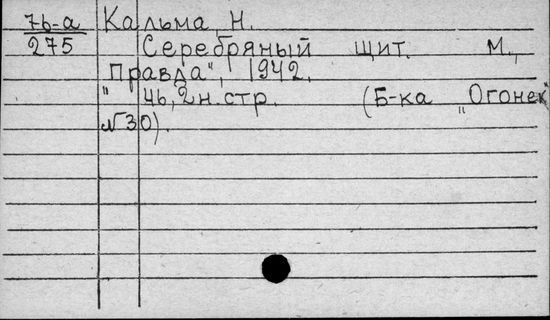 76-а Кальма, Н.
275 Серебряный щит. М.,
"Правда", 1942.
46, 2 н. стр. (Б-ка "Огонек"
№30).